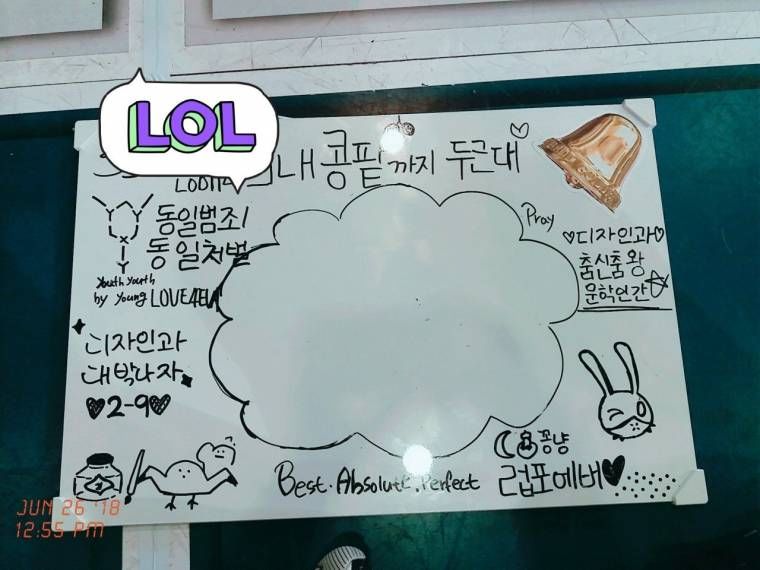 LOL
내 콩팥까지 두근대
동일범죄
동일처벌
Youth Youth
by Young LOVE4EVA
Pray
♡디자인과♡
춤신춤왕
문학인간
디자인과
대박나자
♥2-9♥
꽁냥
럽포에버♥
Best. Absolute. Perfect
JUN 26 '18
12:55 PM